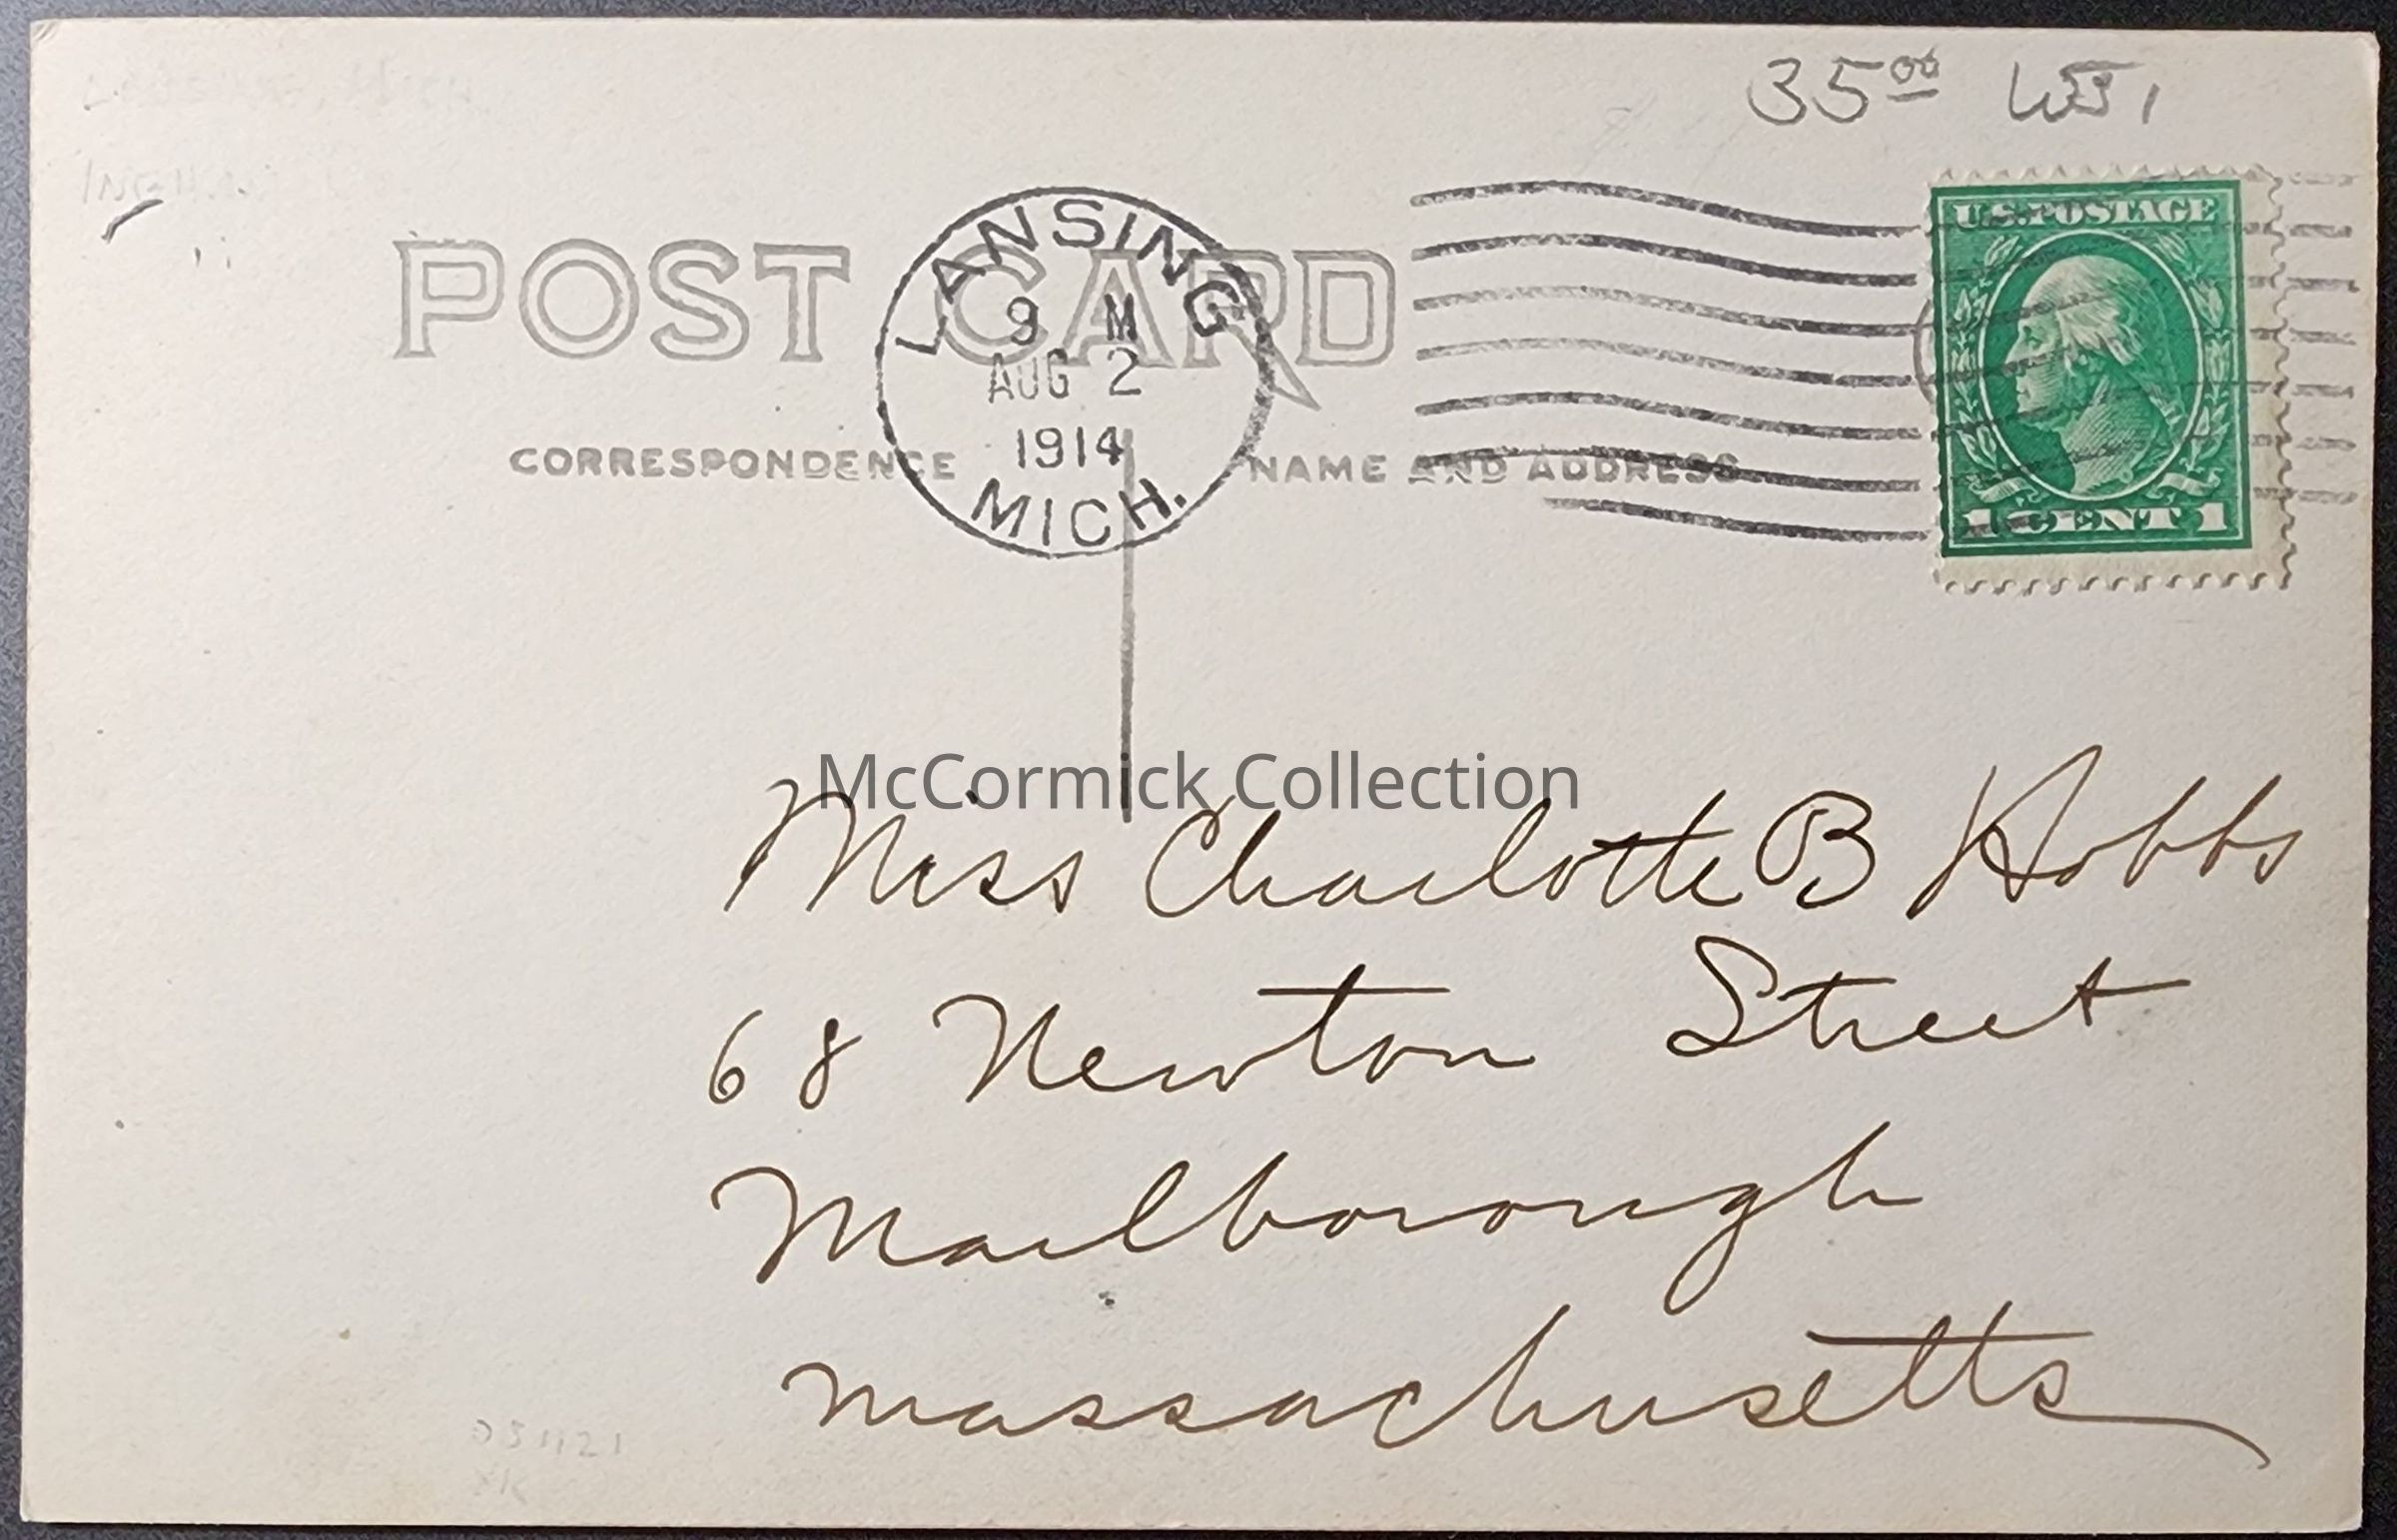 35⁰⁰
U.S. POSTAGE
1 CENT 1
LANSING
9 M
AUG 2
1914
MICH.
POST CARD
CORRESPONDENCE
NAME AND ADDRESS
McCormick Collection
Miss Charlotte B Hobbs
68 Newton Street
Marlborough
Massachusetts